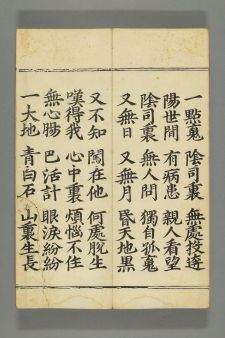 一點䰟 陰司裏 無處投逩
陽世間 有病患 親人看望
陰司裏 無人問 獨自孤䰟
又無日 又無月 昏天地黑
又不知 閣在他 何處脫生
嘆得我 心中裏 煩惱不住
無心腸 巴活計 眼淚紛紛
一大地 青白石 山裏生長